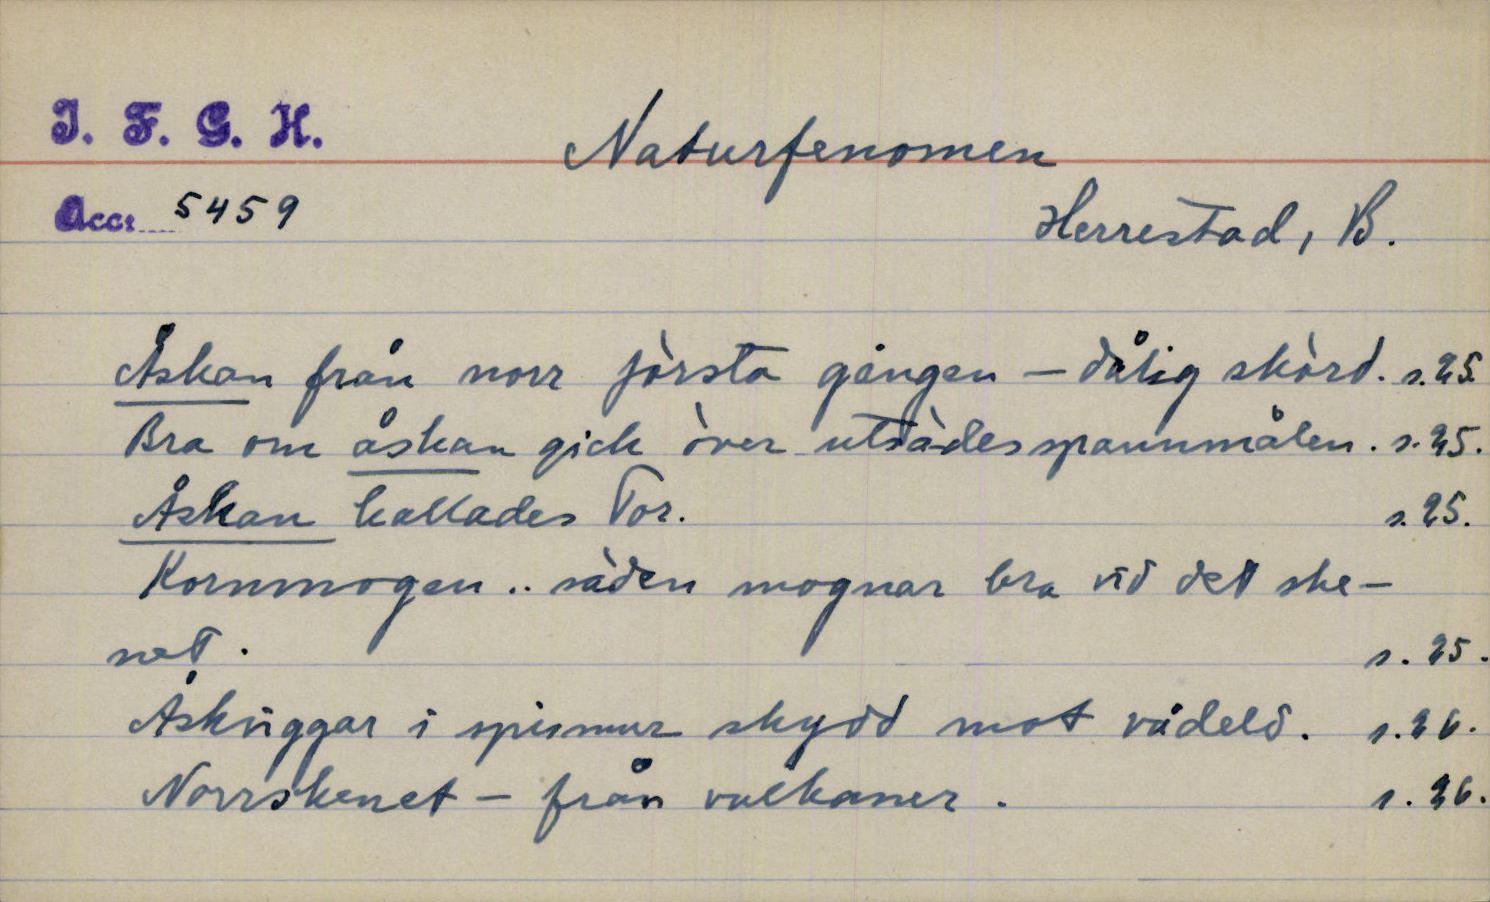 I. F. G. H.
Naturfenomen
Acc: 5459
Herrestad, B.
Åskan från norr första gången – dålig skörd. s. 25.
Bra om åskan gick över utsädesspannmålen. s. 25.
Åskan kallades Tor. s. 25.
Kornmogen .. säden mognar bra vid det ske-
net. s. 25.
Åskviggar i spismur skydd mot vådeld. s. 26.
Norrskenet – från vulkaner. s. 26.